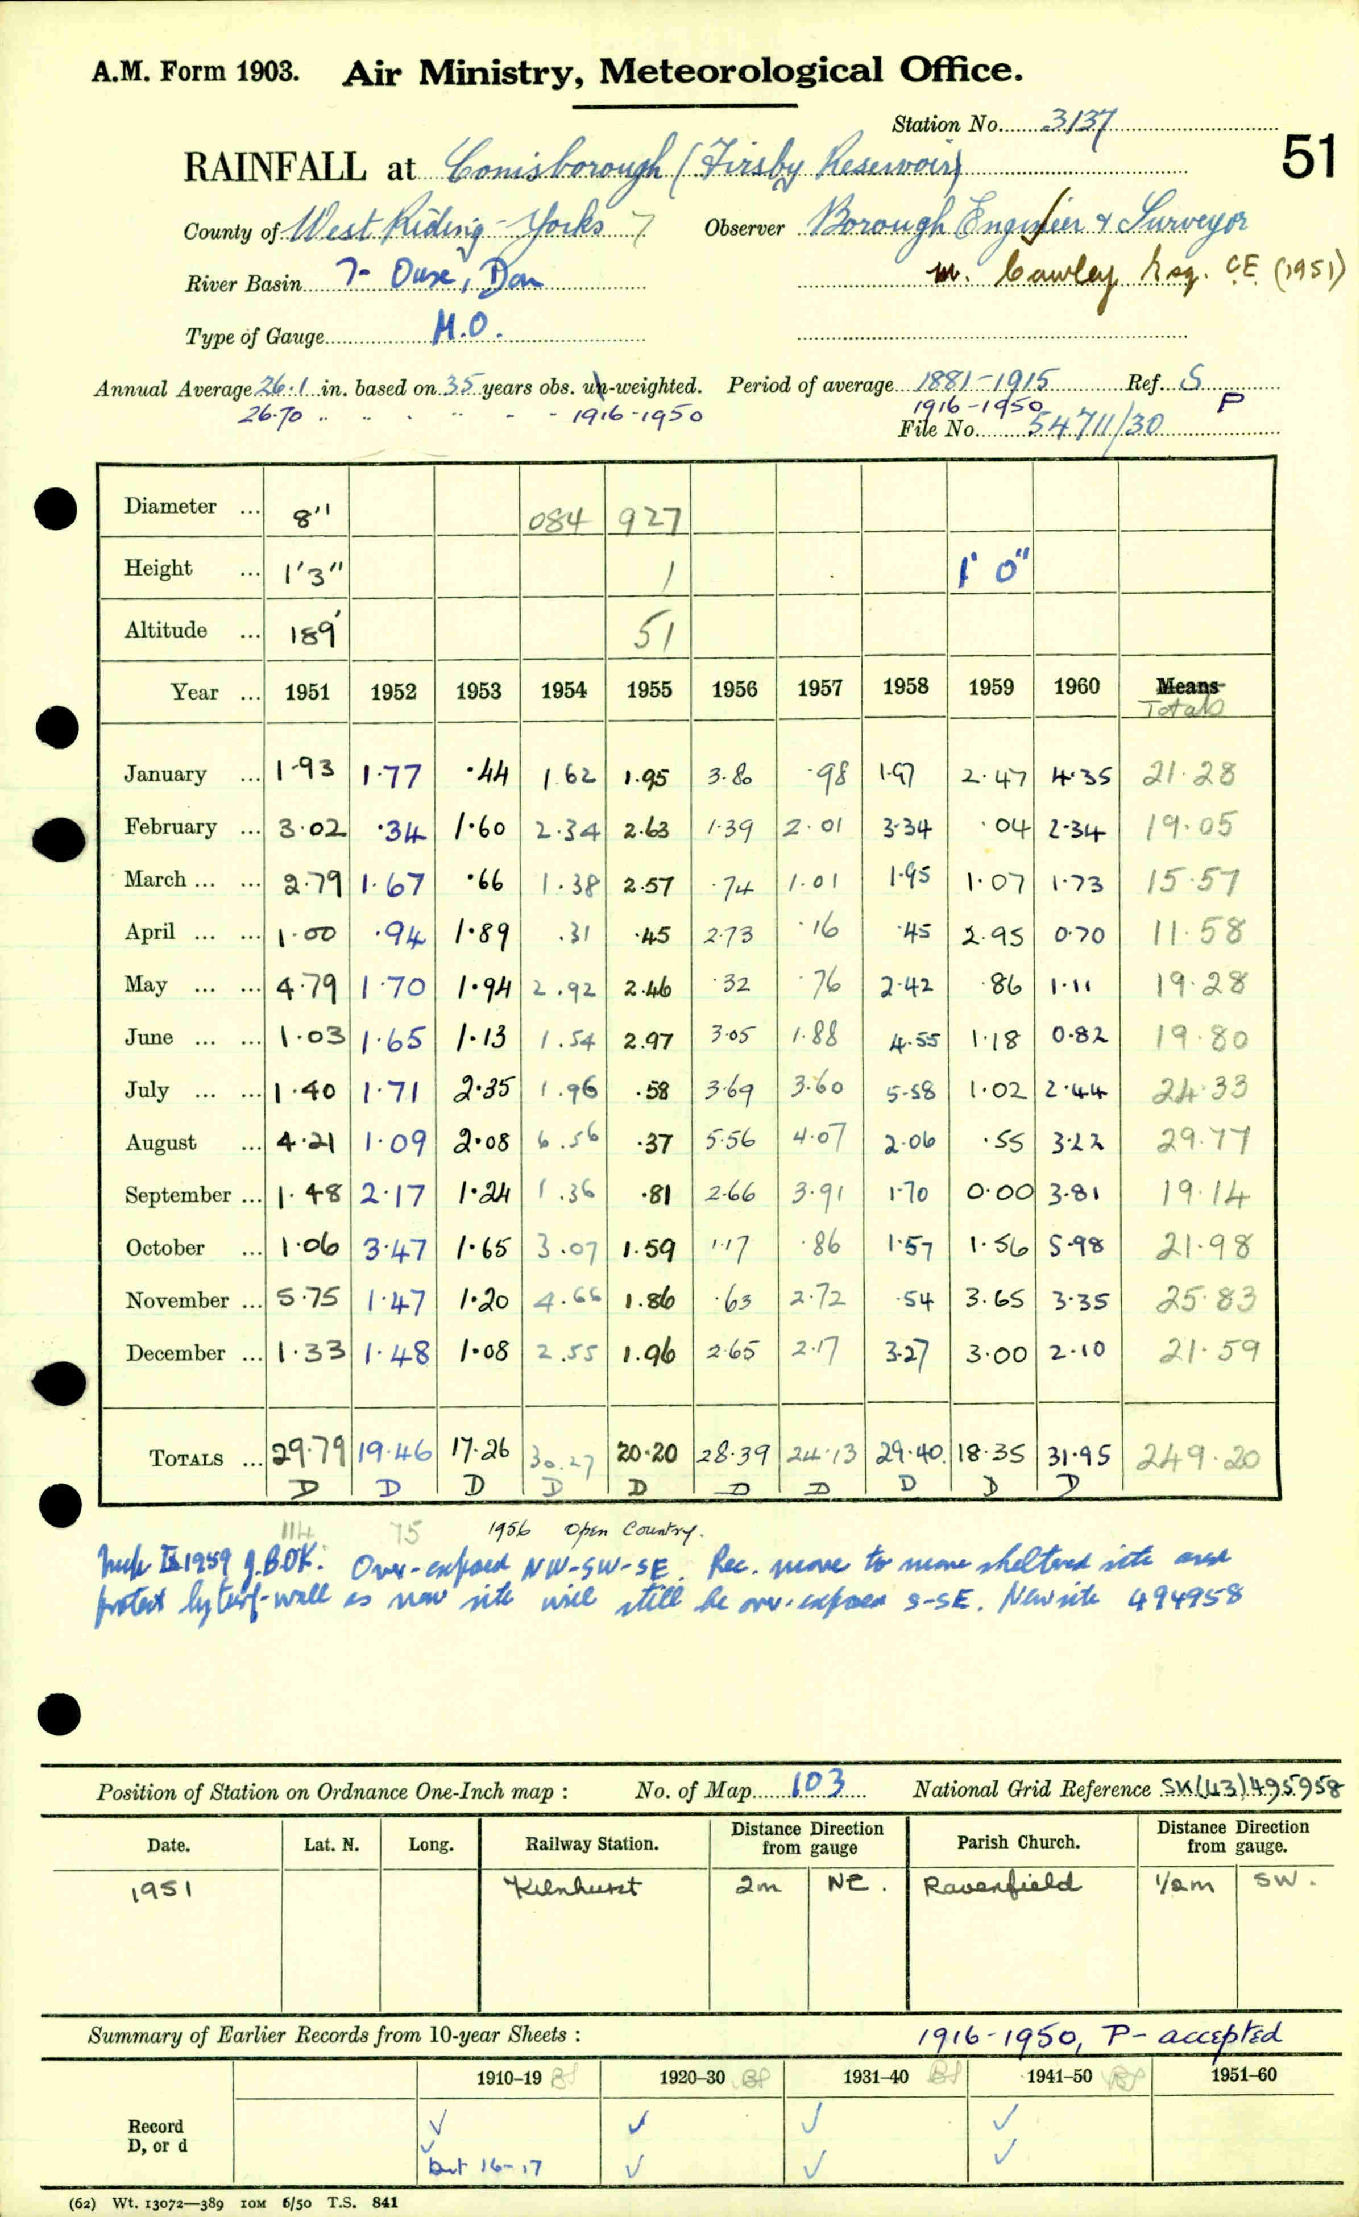 A.M. Form 1903. Air Ministry, Meteorological Office.
Station No. 3137
51
RAINFALL at Conisborough (Firsby Reservoir)
County of West Riding - Yorks 7 Observer Borough Engineer & Surveyor
River Basin 7- Ouse, Don M. Cawley Esq. C.E. (1951)
Type of Gauge M.O.
Annual Average 26.1 in. based on 35 years obs. un-weighted. Period of average 1881-1915 Ref. S
26.70 " " " " - - 1916-1950 1916-1950 P
File No. 54711/30
Diameter ... 8" 084 927
Height ... 1'3" 1 1' 0"
Altitude ... 189' 51
Year ... 1951 1952 1953 1954 1955 1956 1957 1958 1959 1960 Means
Totals
January ... 1.93 1.77 .44 1.62 1.95 3.80 .98 1.97 2.47 4.35 21.28
February ... 3.02 .34 1.60 2.34 2.63 1.39 2.01 3.34 .04 2.34 19.05
March ... ... 2.79 1.67 .66 1.38 2.57 .74 1.01 1.95 1.07 1.73 15.57
April ... ... 1.00 .94 1.89 .31 .45 2.73 .16 .45 2.95 0.70 11.58
May ... ... 4.79 1.70 1.94 2.92 2.46 .32 .76 2.42 .86 1.11 19.28
June ... ... 1.03 1.65 1.13 1.54 2.97 3.05 1.88 4.55 1.18 0.82 19.80
July ... ... 1.40 1.71 2.35 1.96 .58 3.69 3.60 5.58 1.02 2.44 24.33
August ... 4.21 1.09 2.08 6.56 .37 5.56 4.07 2.06 .55 3.22 29.77
September ... 1.48 2.17 1.24 1.36 .81 2.66 3.91 1.70 0.00 3.81 19.14
October ... 1.06 3.47 1.65 3.07 1.59 1.17 .86 1.57 1.56 5.98 21.98
November ... 5.75 1.47 1.20 4.66 1.86 .63 2.72 .54 3.65 3.35 25.83
December ... 1.33 1.48 1.08 2.55 1.96 2.65 2.17 3.27 3.00 2.10 21.59
TOTALS ... 29.79 19.46 17.26 30.27 20.20 28.39 24.13 29.40 18.35 31.95 249.20
D D D D D D D D D D
114 75 1956 Open Country.
1959 Over-exposed NW-SW-SE. Rec. move to more sheltered site and
protect by turf-wall as new site will still be over-exposed S-SE. New site 494958
Position of Station on Ordnance One-Inch map : No. of Map 103 National Grid Reference SK(43)495958
Date. Lat. N. Long. Railway Station. Distance Direction from gauge Parish Church. Distance Direction from gauge.
1951 Kilnhurst 2m NE. Ravenfield 1/2m SW.
Summary of Earlier Records from 10-year Sheets : 1916-1950, P- accepted
1910-19 1920-30 1931-40 1941-50 1951-60
Record ✓ ✓ ✓ ✓
D, or d ✓ but 16-17 ✓ ✓ ✓
(62) Wt. 13072—389 10M 6/50 T.S. 841